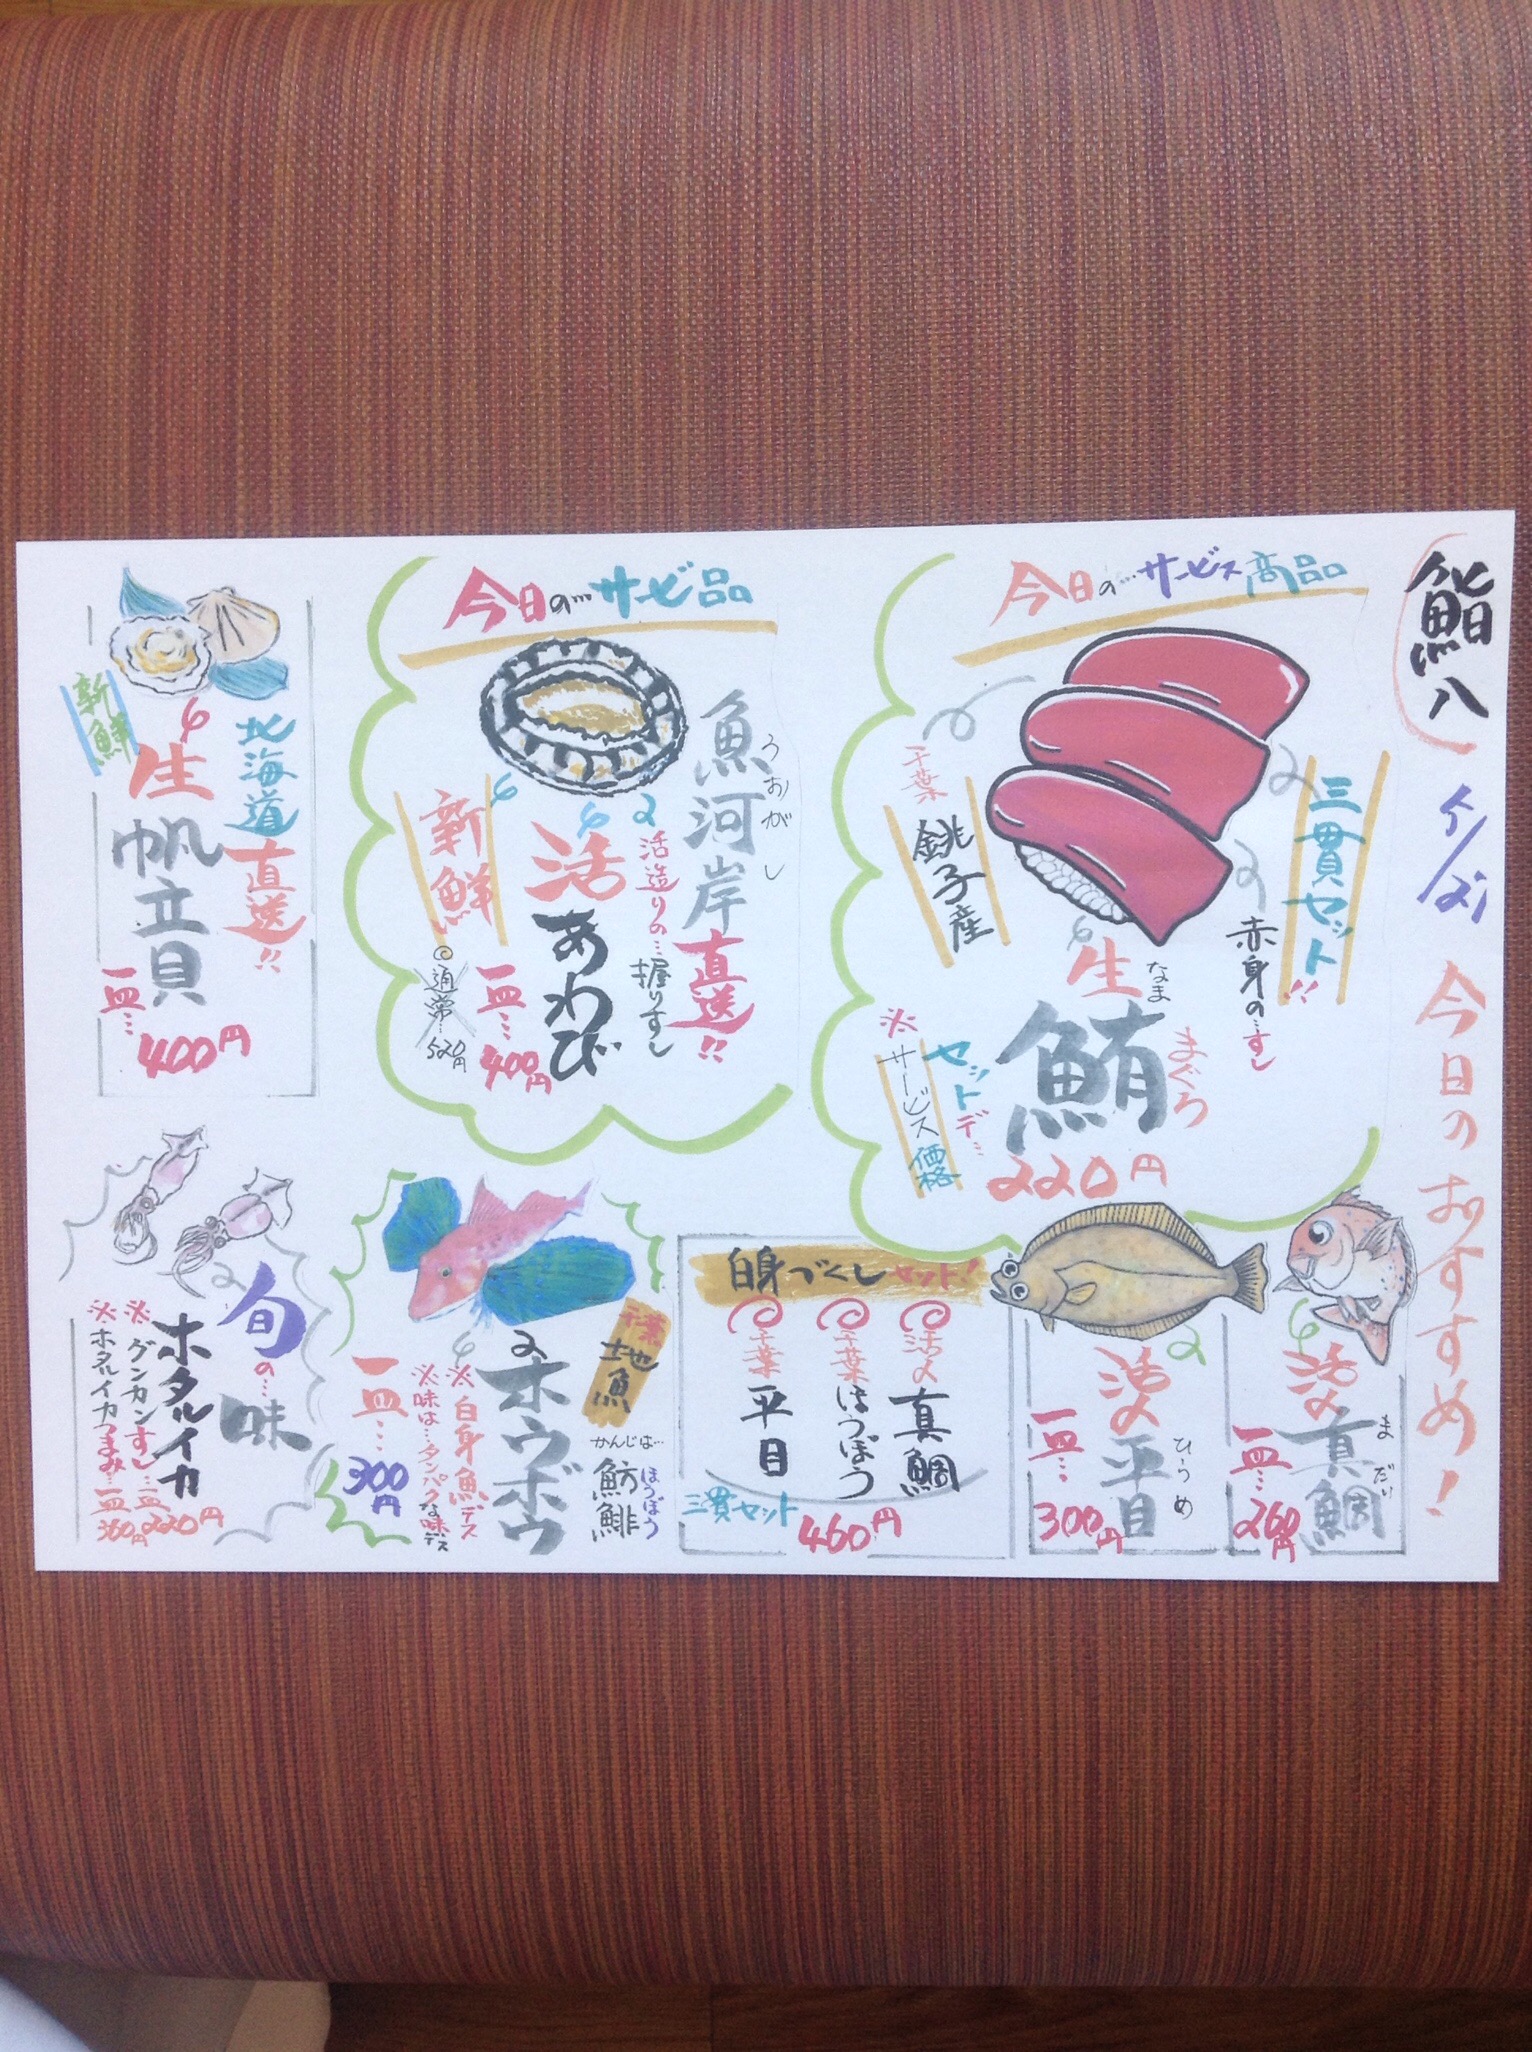 鮨八
今日のおすすめ!
今日の…サービス商品
三貫セット!!
赤身の…すし
生鮪
なま
まぐろ
千葉
銚子産
セットデ…
※サービス価格
220円
今日の…サービ品
魚河岸直送!!
うおがし
活造りの…握りすし
活あわび
新鮮
一皿…400円
通常…520円
北海道直送!!
生帆立貝
新鮮
一皿…400円
活〆真鯛
まだい
一皿…260円
活〆平目
ひらめ
一皿…300円
白身づくしセット!
活〆真鯛
千葉ほうぼう
千葉平目
三貫セット
460円
千葉
地魚
ホウボウ
かんじは…
魴鮄
ほうぼう
※白身魚デス
※味は…タンパクな味デス
一皿…
300円
旬の…味
ホタルイカ
※グンカンすし…一皿220円
※ホタルイカつまみ…一皿360円